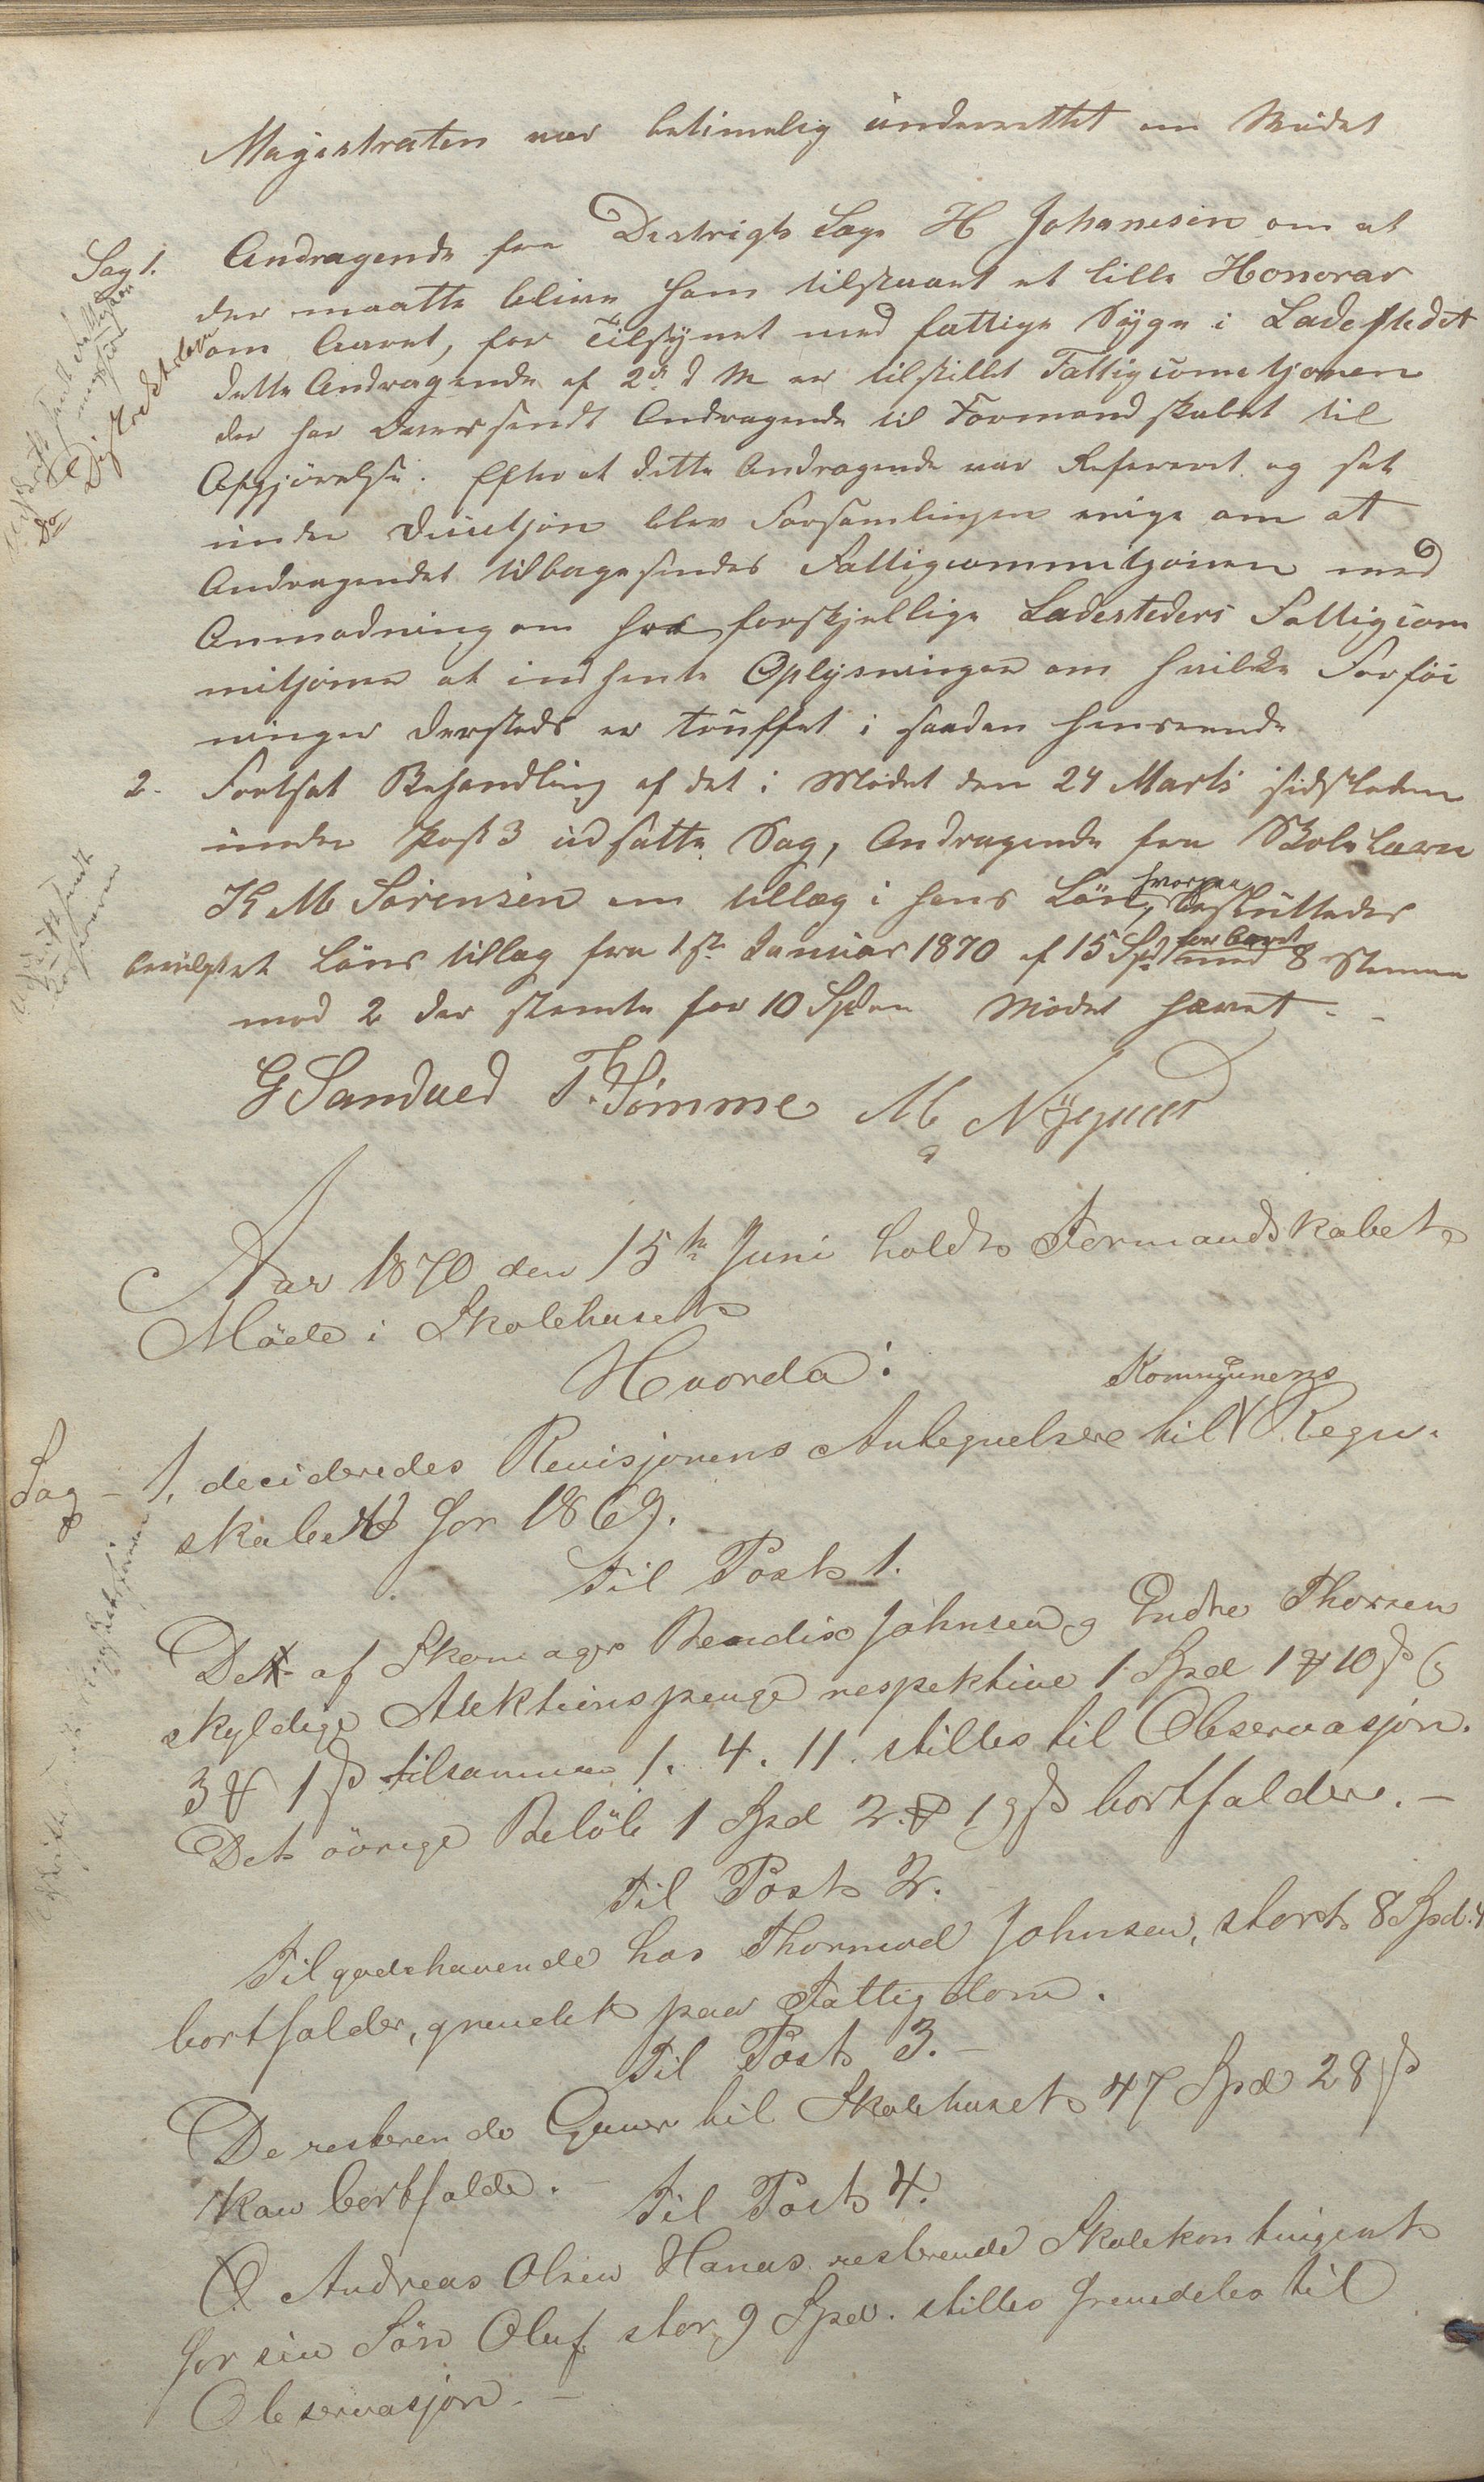 Magistraten var betimelig underrettet om Mødet
Sag 1. Andragende fra Destrigts Læge H Johanesen om at
der maatte blive ham tilstaaet et lille Honorar
om Aaret, for Tilsynet med fattige Syge i Ladestedet
dette Andragende af 2d d M er tilstillet Fattigcomitjonen
der har Oversendt Andragende til Formandskabet til
Afgjörelse. Efter at dette Andragende var Refereret og sat
under blev Forsamlingen enige om at
Andragendet tilbagesendes Fattigcommitjonen med
Anmodning om fra forskjellige Ladesteders Fattigcom
mitjoner at indhente Oplysninger om hvilke Forföi
ninger dersteds er truffet i saaden henseende
2. Fortsat Behandling af det i Mödet den 24 Marts sidstleden
under Post 3 udsatte Sag, Andragende fra Skolelærer
K M Sörensen om tillæg i hans Lön, hvorpaa besluttedes
bevilget Löns tillæg fra 1ste Januar 1870 af 15 Spd for Aaret med 8 Stemmer
mod 2 der stemte for 10 Spd Mödet hævet - -
G Sandved T. Sömme M Nÿgaard
Aar 1870 den 15de Juni holdt Formandskabet
Möde i Skolehuset
Hvorda:
Sag - 1, decideredes Revisjonens Antegnelser til Kommunens Regn-
skabet for 1869.
Til Post 1.
Det af Skomager Bendix Johnsen og Endre Thorsen
skyldige Auktionspenge respektive 1 Spd 1 ₰ 10 ß og
3 ₰ 1 ß tilsammen 1. 4. 11. stilles til Observasjon.
Det övrige Belöb 1 Spd 2 ₰ 19 ß bortfalder. -
Til Post 2.
Tilgodehavende hos Thormod Johnsen, stort 8 Spd. 4
bortfalder, grundet paa Fattigdom.
Til Post 3. -
De resterende Gaver til Skolehuset 47 Spd 28 ß
kan bortfalde. -
Til Post 4.
O Andreas Olsen Hanas resterende Skolekontingent
for sin Sön Oluf stor 9 Spd. stilles fremdeles til
Observasjon. -